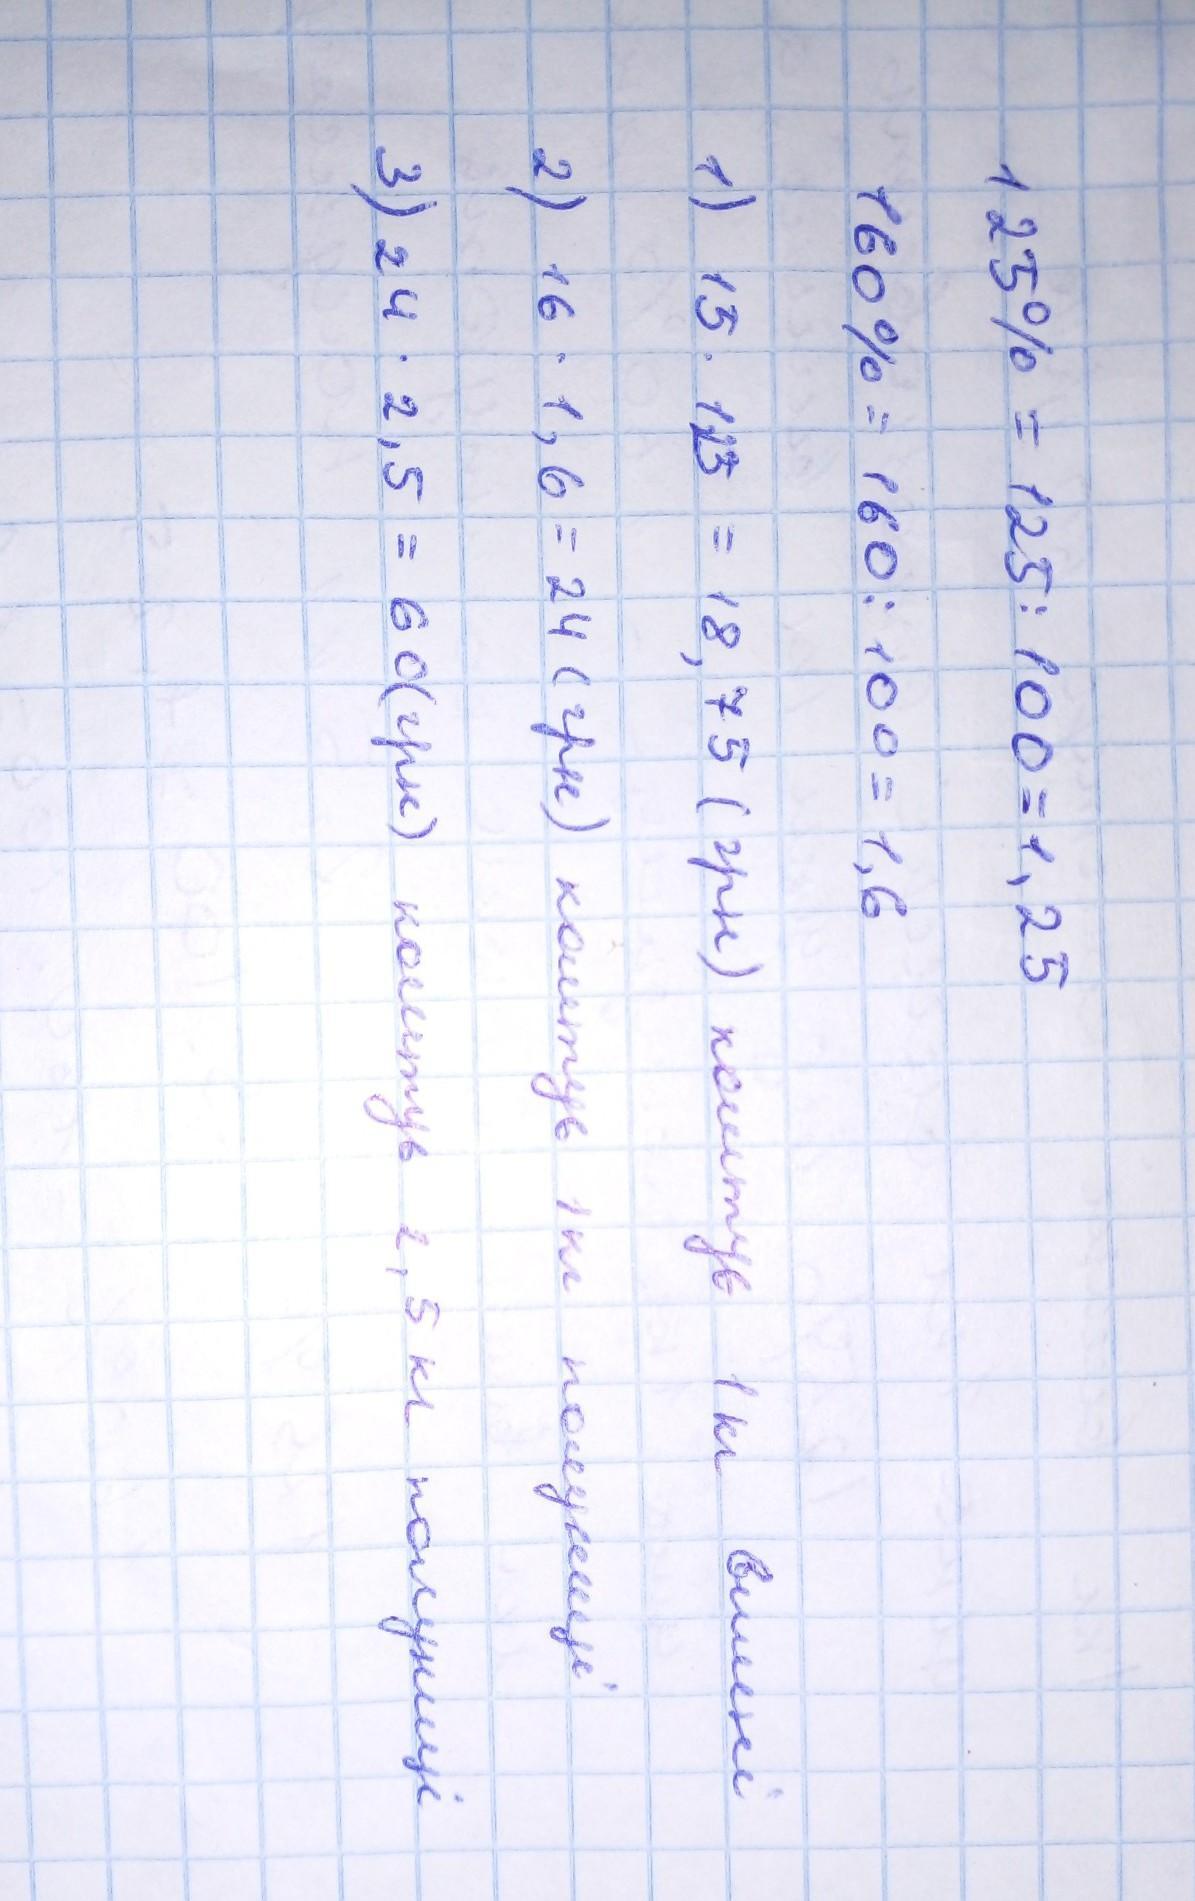 125% = 125:100=1,25
160%=160:100=1,6
1) 15·1,25 = 18,75 (грн) коштує 1кг вишні
2) 16·1,6=24(грн) коштує 1кг полуниці
3) 24·2,5=60(грн) коштує 2,5кг полуниці